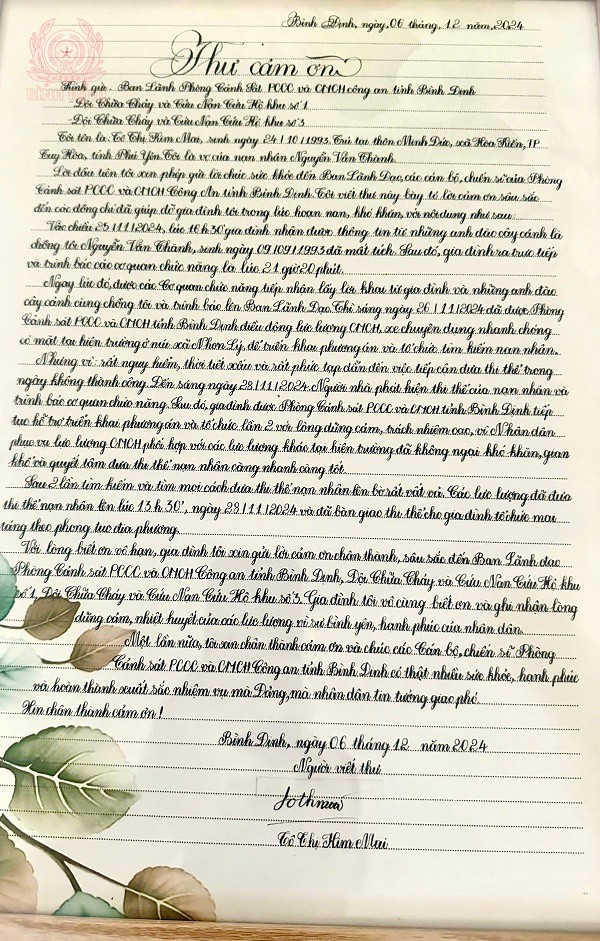 Bình Định, ngày, 06 tháng, 12 năm, 2024
Thư cảm ơn
Kính gửi: Ban Lãnh Phòng Cảnh Sát PCCC và CMCH công an tỉnh Bình Định
Đội Chữa Cháy và Cứu Nạn Cứu Hộ khu số 1
Đội Chữa Cháy và Cứu Nạn Cứu Hộ khu số 3
Tôi tên là: Tô Thị Kim Mai, sinh ngày 24/10/1993. Trú tại thôn Minh Đức, xã Hòa Kiến, TP
Tuy Hòa, tỉnh Phú Yên. Tôi là vợ của nạn nhân Nguyễn Văn Thành.
Lời đầu tiên tôi xin phép gửi lời chúc sức khỏe đến Ban Lãnh Đạo, các cán bộ, chiến sĩ của Phòng
Cảnh sát PCCC và CMCH Công An tỉnh Bình Định. Tôi viết thư này bày tỏ lời cảm ơn sâu sắc
đến các đồng chí đã giúp đỡ gia đình tôi trong lúc hoạn nạn, khó khăn, với nội dung như sau
Tác chiều 25/11/2024, lúc 16h30 gia đình nhận được thông tin từ những anh đào cây cảnh là
chồng tôi Nguyễn Văn Thành, sinh ngày 09/09/1993 đã mất tích. Sau đó, gia đình ra trực tiếp
và trình báo các cơ quan chức năng là lúc 21 giờ 20 phút.
Ngay lúc đó, được các Cơ quan chức năng tiếp nhận lấy lời khai từ gia đình và những anh đào
cây cảnh cùng chồng tôi và trình báo lên Ban Lãnh Đạo. Thì sáng ngày 26/11/2024 đã được Phòng
Cảnh sát PCCC và CMCH tỉnh Bình Định điều động lực lượng CMCH, xe chuyên dụng nhanh chóng
có mặt tại hiện trường ở núi xã Nhơn Lý, để triển khai phương án và tổ chức tìm kiếm nạn nhân.
Nhưng vì: rất nguy hiểm, thời tiết xấu và rất phức tạp dẫn đến việc tiếp cận đưa thi thể trong
ngày không thành công. Đến sáng ngày 28/11/2024. Người nhà phát hiện thi thể của nạn nhân và
trình báo cơ quan chức năng. Sau đó, gia đình được Phòng Cảnh sát PCCC và CMCH tỉnh Bình Định tiếp
tục hỗ trợ triển khai phương án và tổ chức lần 2 với lòng dũng cảm, trách nhiệm cao, vì Nhân dân
phục vụ lực lượng CMCH phối hợp với các lực lượng khác tại hiện trường đã không ngại khó khăn, gian
khổ và quyết tâm đưa thi thể nạn nhân càng nhanh càng tốt.
Sau 2 lần tìm kiếm và tìm mọi cách đưa thi thể nạn nhân lên bờ rất vất vả. Các lực lượng đã đưa
thi thể nạn nhân lên lúc 13h30', ngày 28/11/2024 và đã bàn giao thi thể cho gia đình tổ chức mai
táng theo phong tục địa phương.
Với lòng biết ơn vô hạn, gia đình tôi xin gửi lời cảm ơn chân thành, sâu sắc đến Ban Lãnh đạo
Phòng Cảnh sát PCCC và CMCH Công an tỉnh Bình Định, Đội Chữa Cháy và Cứu Nạn Cứu Hộ khu
số 1, Đội Chữa Cháy và Cứu Nạn Cứu Hộ khu số 3. Gia đình tôi vô cùng biết ơn và ghi nhận lòng
dũng cảm, nhiệt huyết của các lực lượng vì sự bình yên, hạnh phúc của nhân dân.
Một lần nữa, tôi xin chân thành cảm ơn và chúc các Cán bộ, chiến sĩ Phòng
Cảnh sát PCCC và CMCH Công an tỉnh Bình Định có thật nhiều sức khỏe, hạnh phúc
và hoàn thành xuất sắc nhiệm vụ mà Đảng, mà nhân dân tin tưởng giao phó.
Xin chân thành cảm ơn!
Bình Định, ngày 06 tháng 12 năm 2024
Người viết thư
Tô Thị Kim Mai